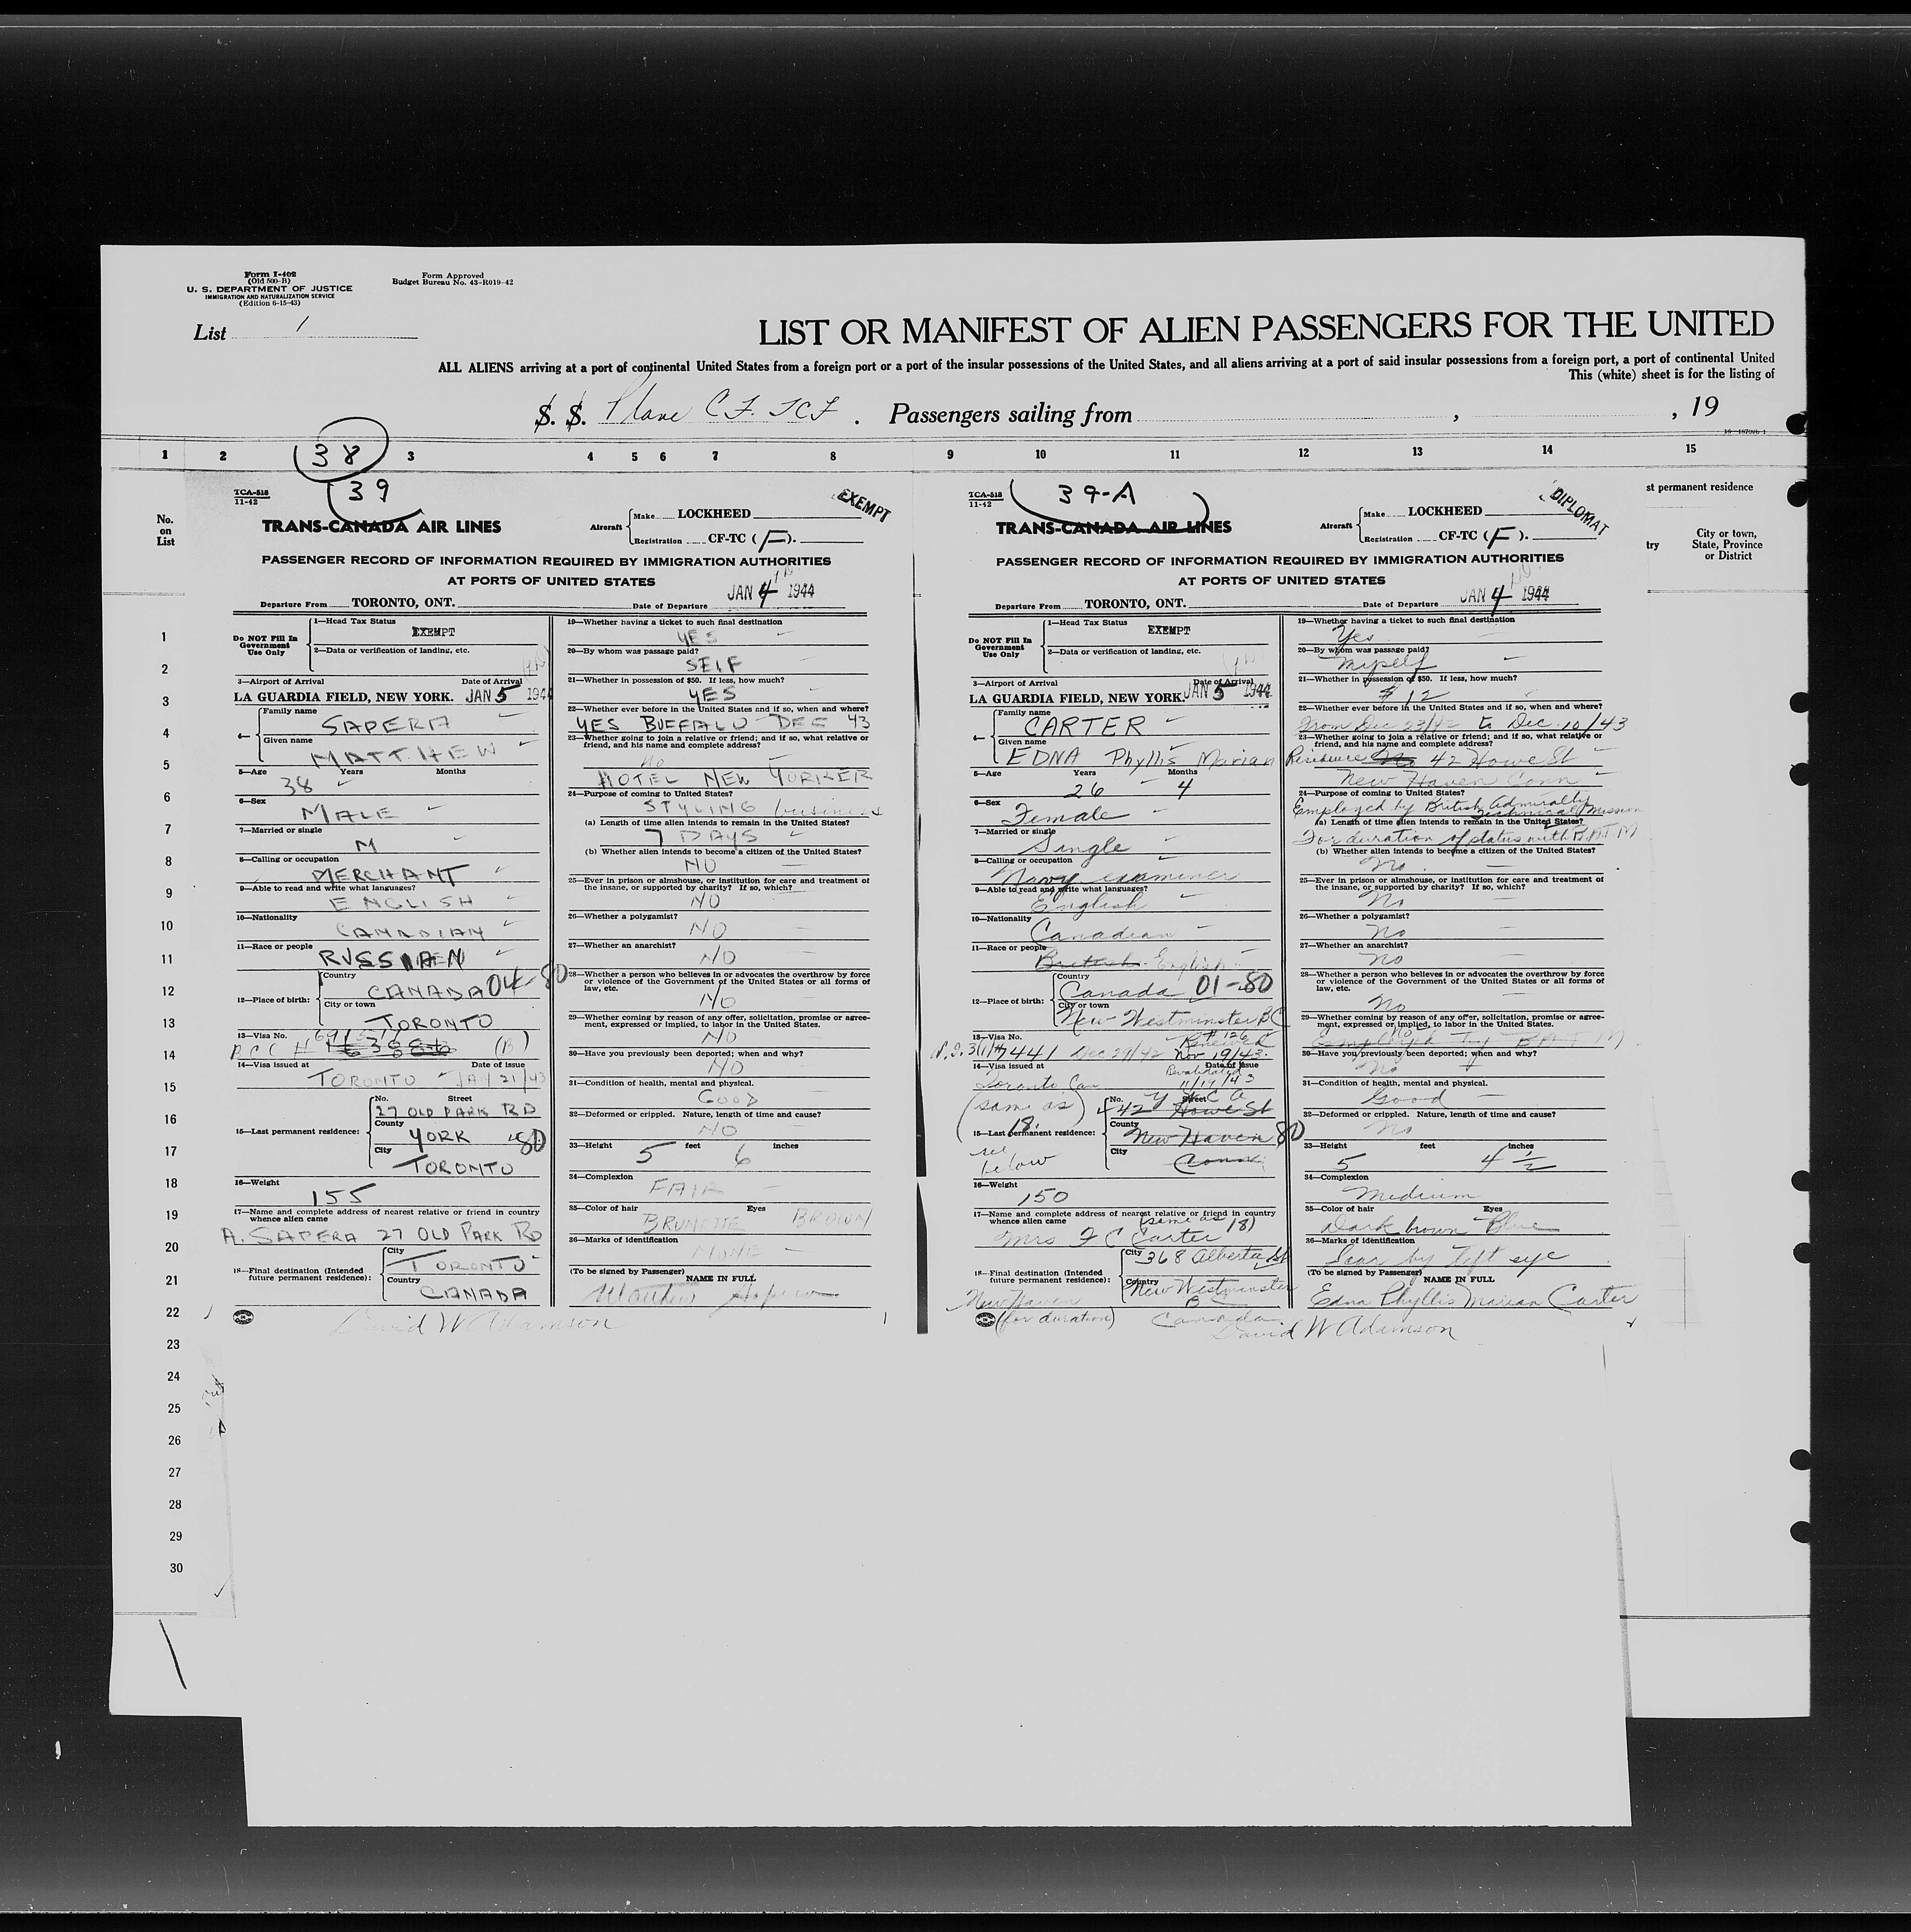 Form I-402
(Old 500-B)
U. S. DEPARTMENT OF JUSTICE
IMMIGRATION AND NATURALIZATION SERVICE
(Edition 6-15-43)
Form Approved
Budget Bureau No. 43-R019-42
List 1
LIST OR MANIFEST OF ALIEN PASSENGERS FOR THE UNITED
ALL ALIENS arriving at a port of continental United States from a foreign port or a port of the insular possessions of the United States, and all aliens arriving at a port of said insular possessions from a foreign port, a port of continental United
This (white) sheet is for the listing of
S. S. Plane C F. TCF. Passengers sailing from , , 19
38
1 2 3 4 5 6 7 8 9 10 11 12 13 14 15
No.
on
List
st permanent residence
try
City or town,
State, Province
or District
1
2
3
4
5
6
7
8
9
10
11
12
13
14
15
16
17
18
19
20
21
22
23
24
25
26
27
28
29
30
TCA-518
11-42
39
EXEMPT
TRANS-CANADA AIR LINES
Aircraft
Make LOCKHEED
Registration CF-TC (F).
PASSENGER RECORD OF INFORMATION REQUIRED BY IMMIGRATION AUTHORITIES
AT PORTS OF UNITED STATES
Departure From TORONTO, ONT. Date of Departure JAN 4 1944
Do NOT Fill In
Government
Use Only
1—Head Tax Status
EXEMPT
2—Data or verification of landing, etc.
3—Airport of Arrival Date of Arrival
LA GUARDIA FIELD, NEW YORK. JAN 5 1944
4—
Family name
SAPERA
Given name
MATTHEW
5—Age Years Months
38
6—Sex
MALE
7—Married or single
M
8—Calling or occupation
MERCHANT
9—Able to read and write what languages?
ENGLISH
10—Nationality
CANADIAN
11—Race or people
RUSSIAN
12—Place of birth:
Country
CANADA 04-80
City or town
TORONTO
13—Visa No.
(B)
14—Visa issued at Date of issue
TORONTO JAN 21/43
15—Last permanent residence:
No. Street
27 OLD PARK RD
County
YORK 80
City
TORONTO
16—Weight
155
17—Name and complete address of nearest relative or friend in country
whence alien came
A. SAPERA 27 OLD PARK RD
18—Final destination (Intended
future permanent residence):
City
TORONTO
Country
CANADA
19—Whether having a ticket to such final destination
YES
20—By whom was passage paid?
SELF
21—Whether in possession of $50. If less, how much?
YES
22—Whether ever before in the United States and if so, when and where?
YES BUFFALO DEC 43
23—Whether going to join a relative or friend; and if so, what relative or
friend, and his name and complete address?
No
HOTEL NEW YORKER
24—Purpose of coming to United States?
STYLING business
(a) Length of time alien intends to remain in the United States?
7 DAYS
(b) Whether alien intends to become a citizen of the United States?
NO
25—Ever in prison or almshouse, or institution for care and treatment of
the insane, or supported by charity? If so, which?
NO
26—Whether a polygamist?
NO
27—Whether an anarchist?
NO
28—Whether a person who believes in or advocates the overthrow by force
or violence of the Government of the United States or all forms of
law, etc.
NO
29—Whether coming by reason of any offer, solicitation, promise or agree-
ment, expressed or implied, to labor in the United States.
NO
30—Have you previously been deported; when and why?
NO
31—Condition of health, mental and physical.
GOOD
32—Deformed or crippled. Nature, length of time and cause?
NO
33—Height feet inches
5 6
34—Complexion
FAIR
35—Color of hair Eyes
BRUNETTE BROWN
36—Marks of identification
NONE
(To be signed by Passenger)
NAME IN FULL
David W Adamson
TCA-518
11-42
39-A
DIPLOMAT
TRANS-CANADA AIR LINES
Aircraft
Make LOCKHEED
Registration CF-TC (F).
PASSENGER RECORD OF INFORMATION REQUIRED BY IMMIGRATION AUTHORITIES
AT PORTS OF UNITED STATES
Departure From TORONTO, ONT. Date of Departure JAN 4 1944
Do NOT Fill In
Government
Use Only
1—Head Tax Status
EXEMPT
2—Data or verification of landing, etc.
3—Airport of Arrival Date of Arrival
LA GUARDIA FIELD, NEW YORK. JAN 5 1944
4—
Family name
CARTER
Given name
EDNA Phyllis Marian
5—Age Years Months
26 4
6—Sex
Female
7—Married or single
Single
8—Calling or occupation
Navy examiner
9—Able to read and write what languages?
English
10—Nationality
Canadian
11—Race or people
British English
12—Place of birth:
Country
Canada 01-80
City or town
New Westminster BC
13—Visa No.
# 126
Renewed
7441 Dec 29/42 Nov 19/43.
14—Visa issued at Date of issue
Revalidated
Toronto Can 11/19/43
(same as)
18.
15—Last permanent residence:
see
below
No. Street
Y W C A
42 Howe St
County
New Haven 80
City
Conn.
16—Weight
150
17—Name and complete address of nearest relative or friend in country
whence alien came
(same as 18)
Mrs F C Carter
18—Final destination (Intended
future permanent residence):
City
368 Alberta St
Country
New Westminster
B C
New Haven
(for duration) Canada
19—Whether having a ticket to such final destination
Yes
20—By whom was passage paid?
Myself
21—Whether in possession of $50. If less, how much?
$12
22—Whether ever before in the United States and if so, when and where?
From Dec 23/42 to Dec 10/43
23—Whether going to join a relative or friend; and if so, what relative or
friend, and his name and complete address?
Residence No 42 Howe St
New Haven Conn
24—Purpose of coming to United States?
Employed by British Admiralty
Technical Mission
(a) Length of time alien intends to remain in the United States?
For duration of status with B.A.T.M
(b) Whether alien intends to become a citizen of the United States?
No
25—Ever in prison or almshouse, or institution for care and treatment of
the insane, or supported by charity? If so, which?
No
26—Whether a polygamist?
No
27—Whether an anarchist?
No
28—Whether a person who believes in or advocates the overthrow by force
or violence of the Government of the United States or all forms of
law, etc.
No
29—Whether coming by reason of any offer, solicitation, promise or agree-
ment, expressed or implied, to labor in the United States.
No
Employed by B.A.T.M.
30—Have you previously been deported; when and why?
No
31—Condition of health, mental and physical.
Good
32—Deformed or crippled. Nature, length of time and cause?
No
33—Height feet inches
5 4 1/2
34—Complexion
Medium
35—Color of hair Eyes
Dark brown Blue
36—Marks of identification
Scar by left eye
(To be signed by Passenger)
NAME IN FULL
Edna Phyllis Marian Carter
David W Adamson